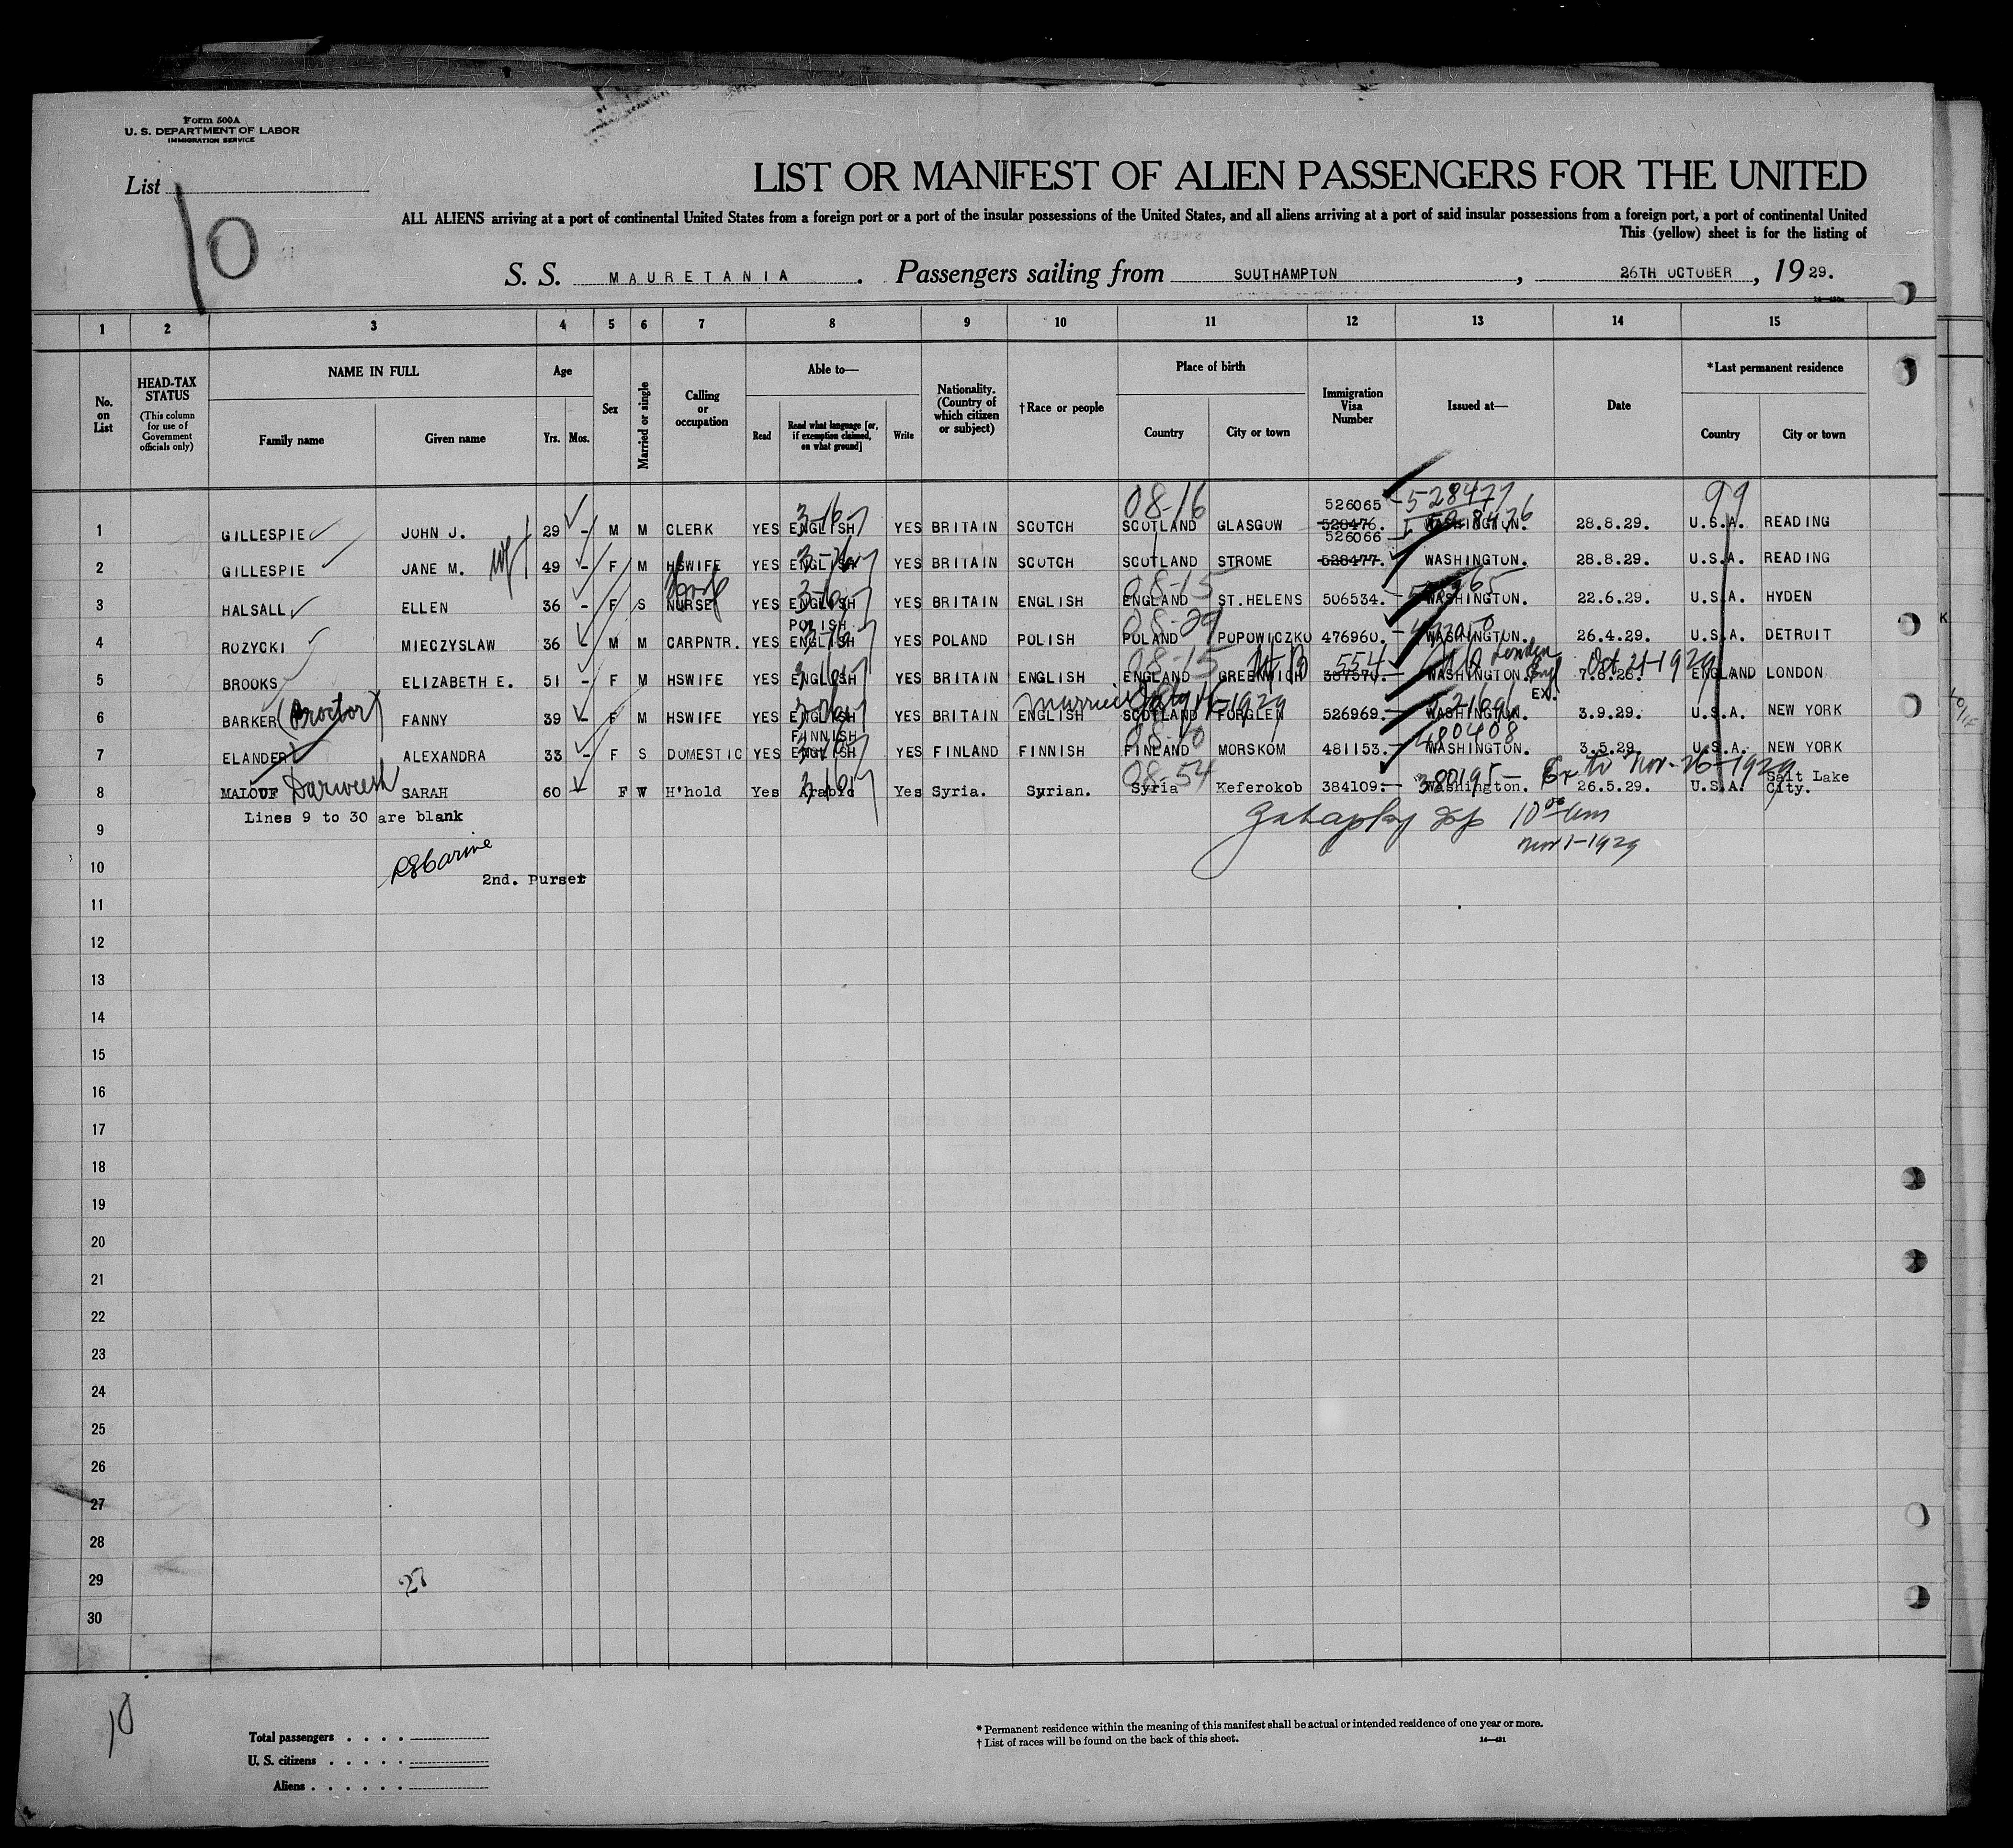 Form 500A
U. S. DEPARTMENT OF LABOR
IMMIGRATION SERVICE
List
10
LIST OR MANIFEST OF ALIEN PASSENGERS FOR THE UNITED
ALL ALIENS arriving at a port of continental United States from a foreign port or a port of the insular possessions of the United States, and all aliens arriving at a port of said insular possessions from a foreign port, a port of continental United
This (yellow) sheet is for the listing of
S. S. MAURETANIA. Passengers sailing from SOUTHAMPTON, 26TH OCTOBER, 1929.
1 2 3 4 5 6 7 8 9 10 11 12 13 14 15
No. on List
HEAD-TAX STATUS
(This column for use of Government officials only)
NAME IN FULL
Family name Given name
Age
Yrs. Mos.
Sex
Married or single
Calling or occupation
Able to—
Read Read what language [or, if exemption claimed, on what ground] Write
Nationality. (Country of which citizen or subject)
†Race or people
Place of birth
Country City or town
Immigration Visa Number
Issued at—
Date
*Last permanent residence
Country City or town
08-16 526065 - 528477 99
1 GILLESPIE JOHN J. 29 - M M CLERK YES ENGLISH 3-16 YES BRITAIN SCOTCH SCOTLAND GLASGOW 528476. WASHINGTON. 528476 28.8.29. U.S.A. READING
526066
2 GILLESPIE JANE M. wf 49 - F M HSWIFE YES ENGLISH YES BRITAIN SCOTCH SCOTLAND STROME 528477. WASHINGTON. 28.8.29. U.S.A. READING
08-15
3 HALSALL ELLEN 36 - F S NURSE YES ENGLISH YES BRITAIN ENGLISH ENGLAND ST.HELENS 506534. WASHINGTON. 22.6.29. U.S.A. HYDEN
POLISH 08-29
4 ROZYCKI MIECZYSLAW 36 - M M CARPNTR. YES ENGLISH YES POLAND POLISH POLAND POPOWICZKO 476960. WASHINGTON. 26.4.29. U.S.A. DETROIT
08-15 554 London Oct 21-1929
5 BROOKS ELIZABETH E. 51 - F M HSWIFE YES ENGLISH YES BRITAIN ENGLISH ENGLAND GREENWICH 387570. WASHINGTON. Eng 7.8.26. ENGLAND LONDON
EX.
6 BARKER (Proctor) FANNY 39 - F M HSWIFE YES ENGLISH YES BRITAIN ENGLISH SCOTLAND FORGLEN 526969. WASHINGTON. 3.9.29. U.S.A. NEW YORK
FINNISH 480408
7 ELANDER ALEXANDRA 33 - F S DOMESTIC YES ENGLISH YES FINLAND FINNISH FINLAND MORSKOM 481153. WASHINGTON. 3.5.29. U.S.A. NEW YORK
08-54 380195 - Ex to Nov-26-1929
8 MALOUF Darweesh SARAH 60 F W H'hold Yes Arabic Yes Syria. Syrian. Syria Keferokob 384109. Washington. 26.5.29. U.S.A. Salt Lake City.
Lines 9 to 30 are blank
9
10 00 am
Nov 1-1929
10
2nd. Purser
11
12
13
14
15
16
17
18
19
20
21
22
23
24
25
26
27
28
29
27
30
10
Total passengers . . . .
U. S. citizens . . . . .
Aliens . . . . . .
* Permanent residence within the meaning of this manifest shall be actual or intended residence of one year or more.
† List of races will be found on the back of this sheet.